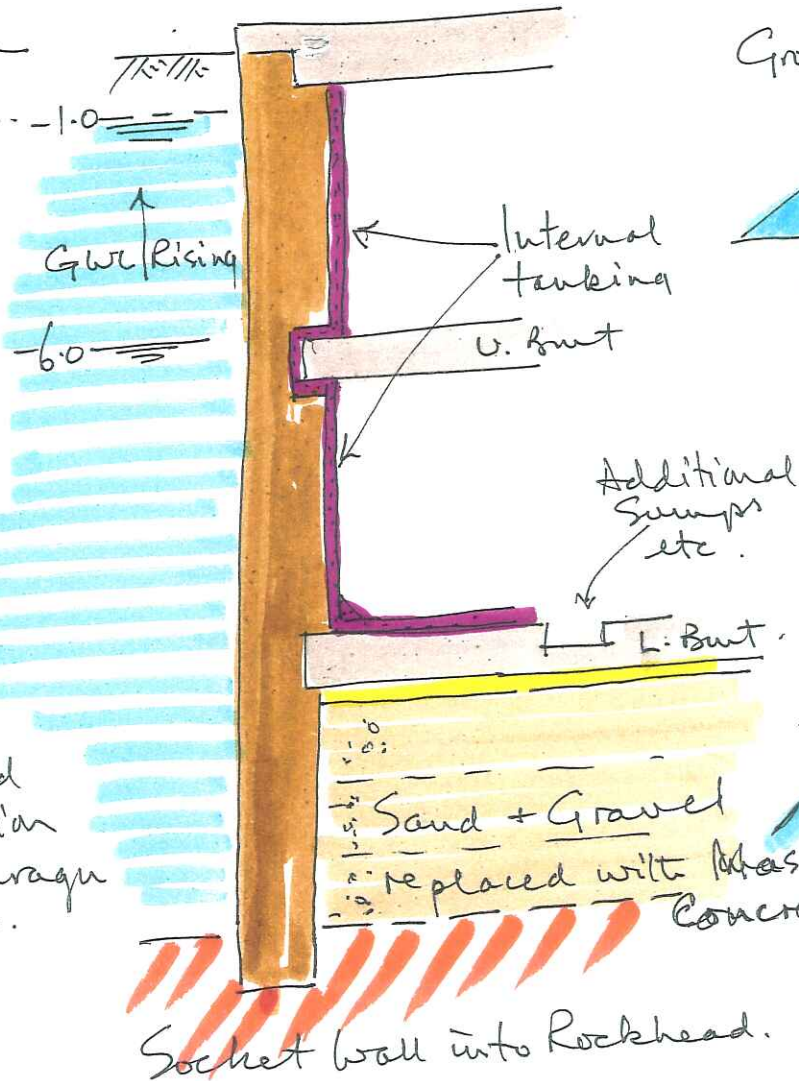 -1.0
GWL Rising
-6.0
Internal
tanking
U. Bmt
Additional
Sumps
etc.
L. Bmt.
Sand + Gravel
replaced with
Socket Wall into Rockhead.